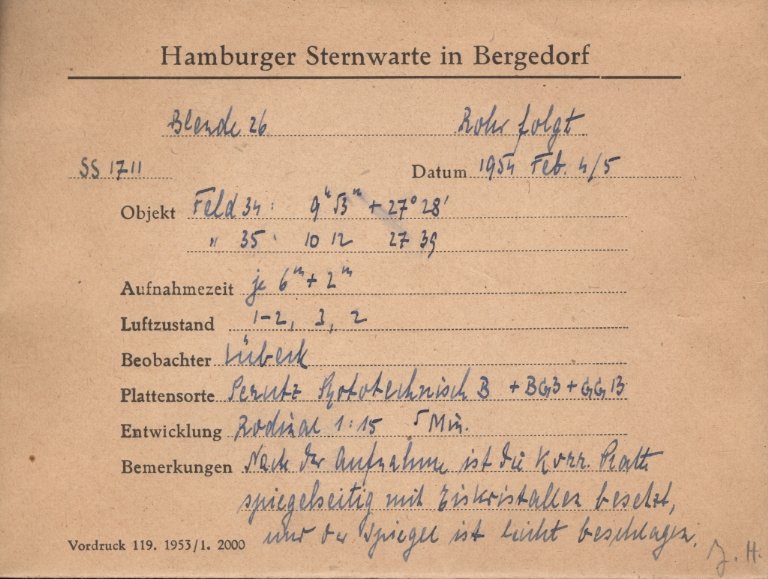 Hamburger Sternwarte in Bergedorf
Blende 26 Rohr folgt
SS 1711 Datum 1954 Feb. 4/5
Objekt Feld 34: 9h 53m + 27° 28'
" 35: 10 12 27 39
Aufnahmezeit je 6m + 2m
Luftzustand 1-2, 3, 2
Beobachter Lübeck
Plattensorte Perutz Phototechnisch B + BG3 + GG13
Entwicklung Rodinal 1:15 5 Min.
Bemerkungen Nach der Aufnahme ist die Korr. Platte
spiegelseitig mit Eiskristallen besetzt,
und der Spiegel ist leicht beschlagen.
Vordruck 119. 1953/1. 2000
J. H.